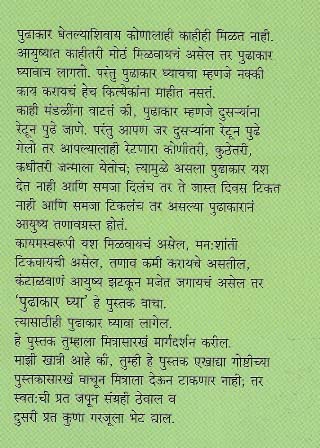 पुढाकार घेतल्याशिवाय कोणालाही काहीही मिळत नाही.
आयुष्यात काहीतरी मोठं मिळवायचं असेल तर पुढाकार
घ्यावाच लागतो. परंतु पुढाकार घ्यायचा म्हणजे नक्की
काय करायचं हेच कित्येकांना माहीत नसतं.
काही मंडळींना वाटतं की, पुढाकार म्हणजे दुसऱ्यांना
रेटून पुढे जाणे. परंतु आपण जर दुसऱ्यांना रेटून पुढे
गेलो तर आपल्यालाही रेटणारा कोणीतरी, कुठेतरी,
कधीतरी जन्माला येतोच; त्यामुळे असला पुढाकार यश
देत नाही आणि समजा दिलंच तर ते जास्त दिवस टिकत
नाही आणि समजा टिकलंच तर असल्या पुढाकारानं
आयुष्य तणावग्रस्त होतं.
कायमस्वरूपी यश मिळवायचं असेल, मन:शांती
टिकवायची असेल, तणाव कमी करायचे असतील,
कंटाळवाणं आयुष्य झटकून मजेत जगायचं असेल तर
'पुढाकार घ्या' हे पुस्तक वाचा.
त्यासाठीही पुढाकार घ्यावा लागेल.
हे पुस्तक तुम्हाला मित्रासारखं मार्गदर्शन करील.
माझी खात्री आहे की, तुम्ही हे पुस्तक एखाद्या गोष्टीच्या
पुस्तकासारखं वाचून मित्राला देऊन टाकणार नाही; तर
स्वत:ची प्रत जपून संग्रही ठेवाल व
दुसरी प्रत कुणा गरजूला भेट द्याल.